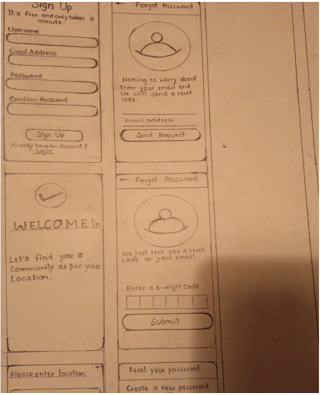 Sign Up
It's free and only takes a
minute.
Username
Email Address
Password
Confirm Password
Sign Up
Already have an Account?
Login
← Forgot Password
Nothing to worry about
Enter your email and
We will send a reset
code.
Email address
Send Request
WELCOME In
Let's find you a
Community as per your
Location.
← Forgot Password
We just sent you a reset
Code on your email
Enter a 6-digit Code
Submit
Please enter location
Reset your password
Create a new password